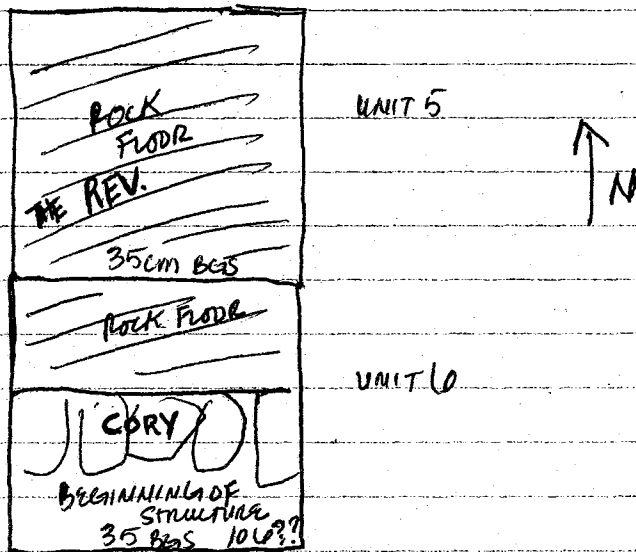 ROCK
FLOOR
THE REV.
35cm BGS
UNIT 5
N
ROCK FLOOR
UNIT 6
CORY
BEGINNING OF
STRUCTURE
35 BGS